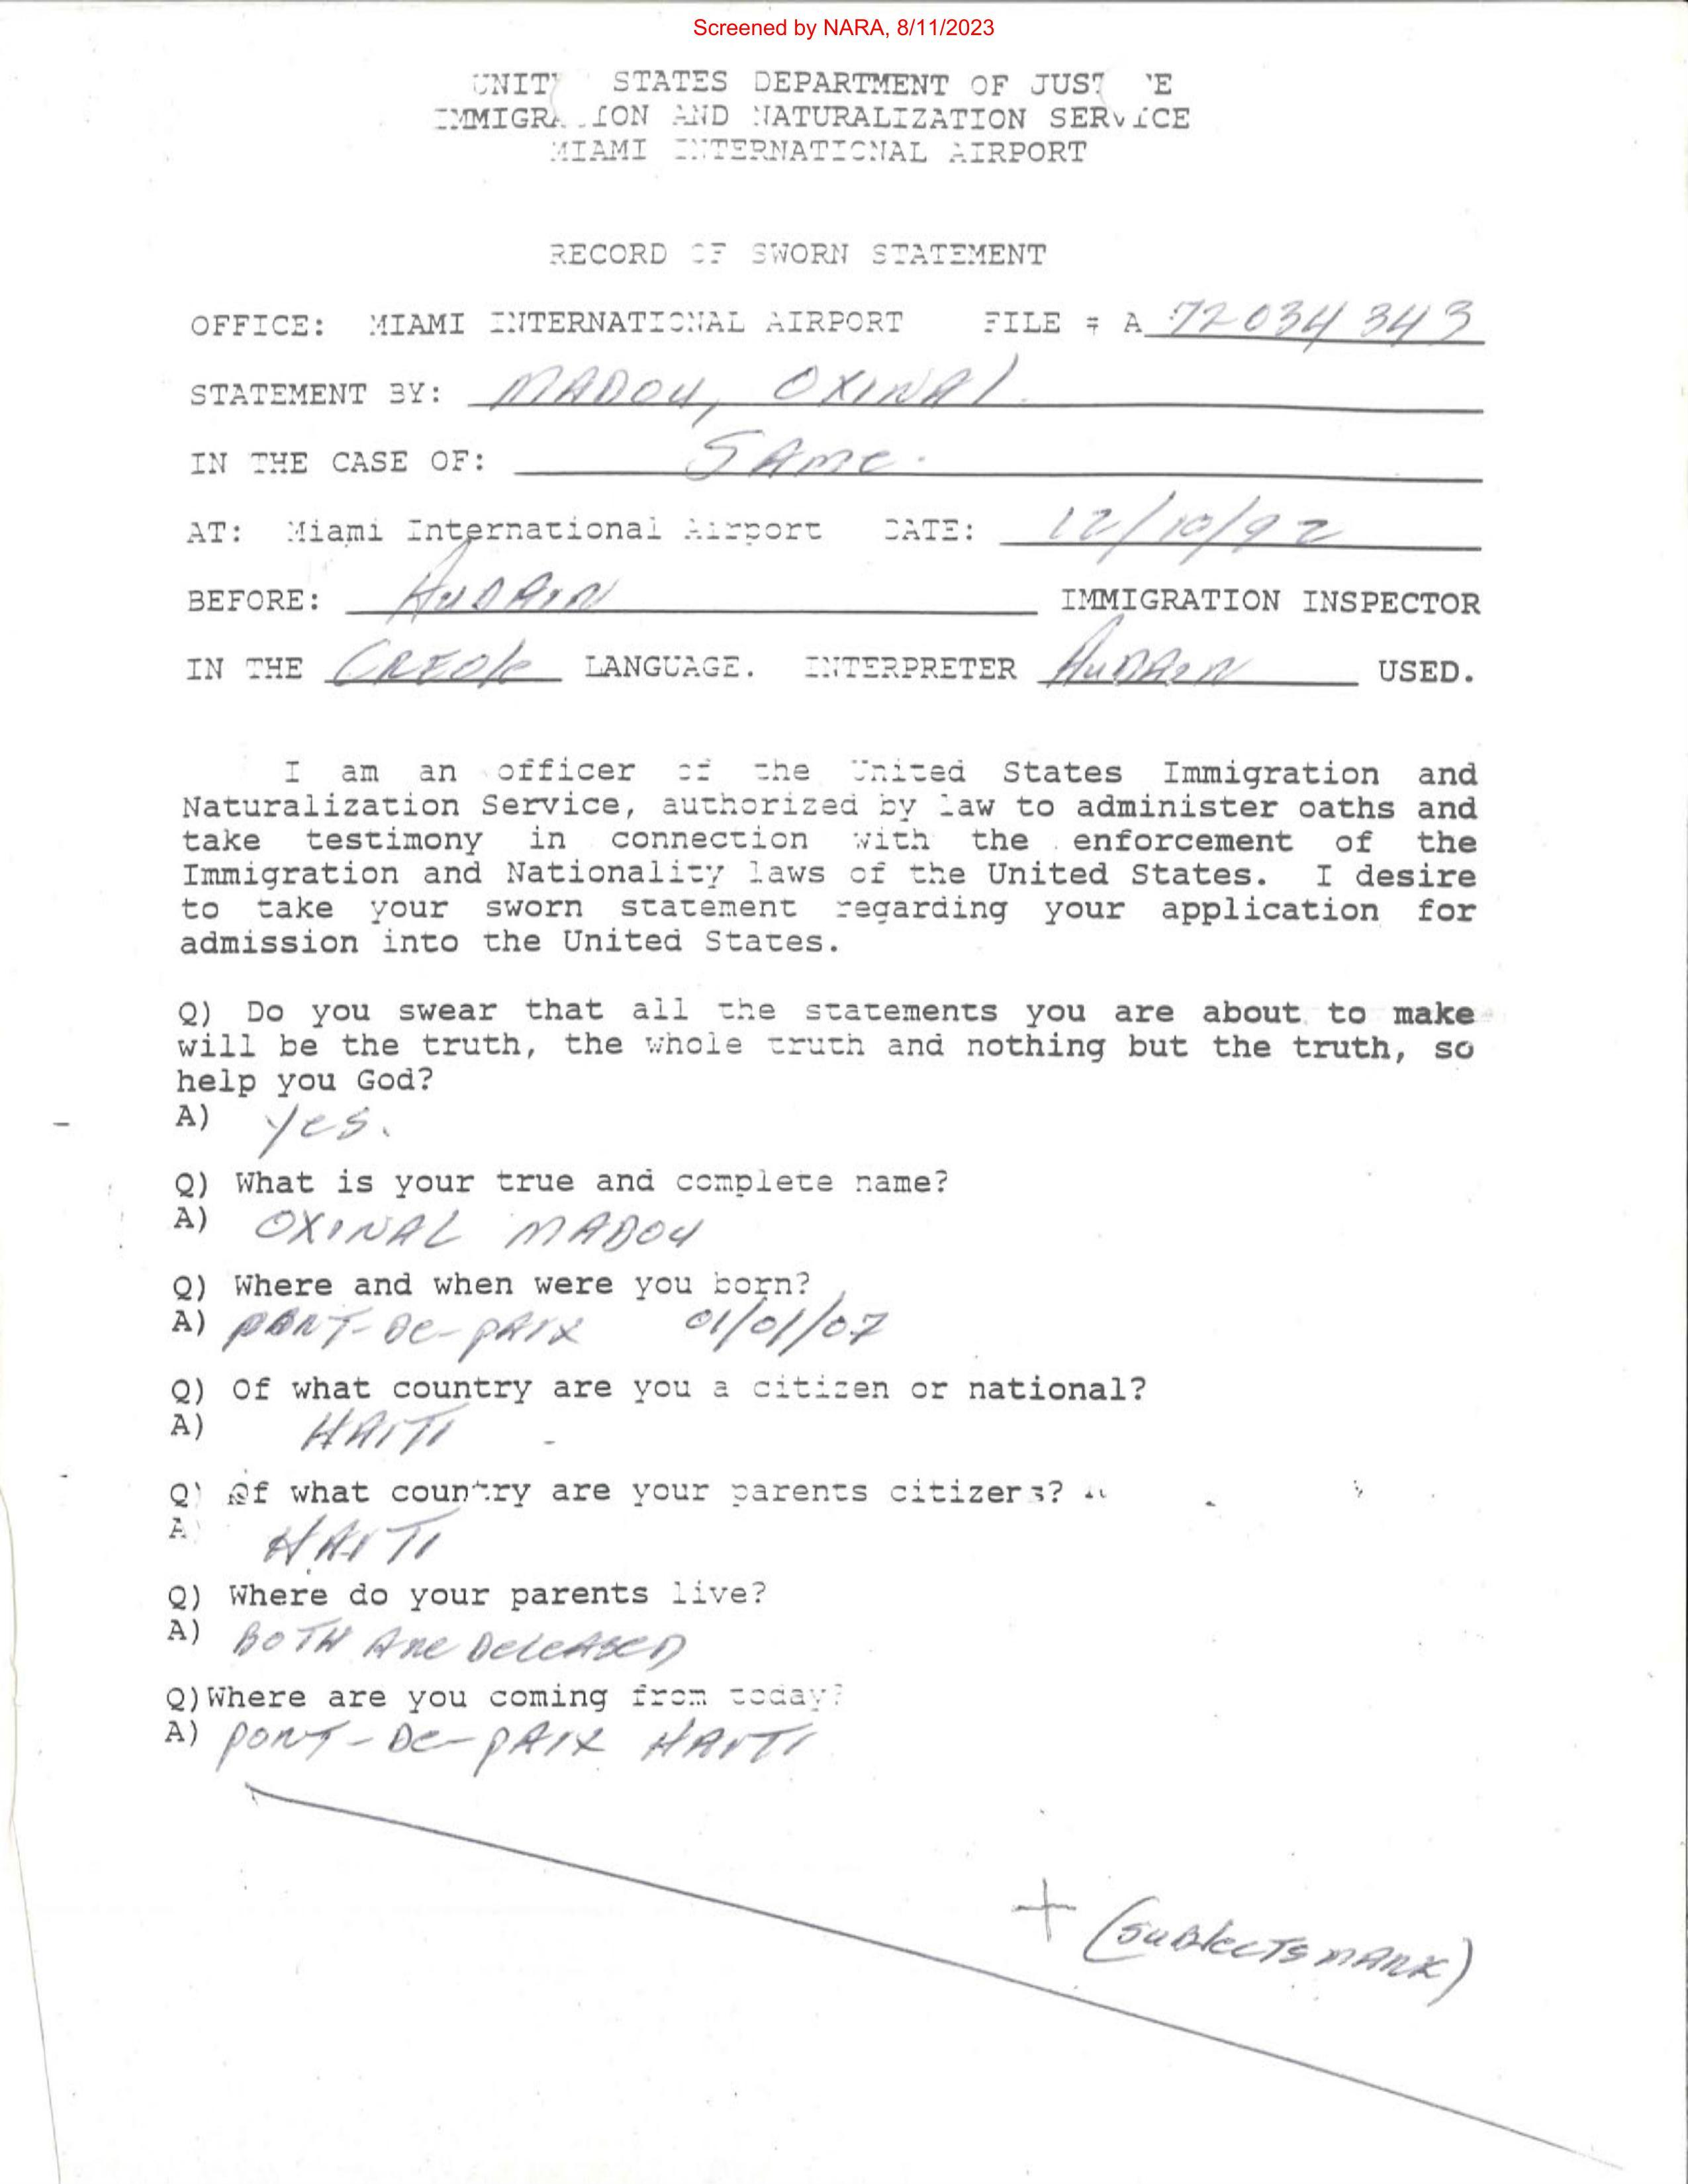 Screened by NARA, 8/11/2023
UNIT STATES DEPARTMENT OF JUST E
IMMIGRA ION AND NATURALIZATION SERVICE
MIAMI INTERNATIONAL AIRPORT
RECORD OF SWORN STATEMENT
OFFICE: MIAMI INTERNATIONAL AIRPORT FILE # A 72034343
STATEMENT BY: MADOU, OXINAL
IN THE CASE OF: SAME.
AT: Miami International Airport DATE: 12/10/92
BEFORE: AUDAIN IMMIGRATION INSPECTOR
IN THE CREOLE LANGUAGE. INTERPRETER AUDAIN USED.
I am an officer of the United States Immigration and
Naturalization Service, authorized by law to administer oaths and
take testimony in connection with the enforcement of the
Immigration and Nationality laws of the United States. I desire
to take your sworn statement regarding your application for
admission into the United States.
Q) Do you swear that all the statements you are about to make
will be the truth, the whole truth and nothing but the truth, so
help you God?
A) yes.
Q) What is your true and complete name?
A) OXINAL MADOU
Q) Where and when were you born?
A) PORT-DE-PAIX 01/01/07
Q) Of what country are you a citizen or national?
A) HAITI
Q) Of what country are your parents citizens?
A) HAITI
Q) Where do your parents live?
A) BOTH ARE DECEASED
Q)Where are you coming from today?
A) PORT-DE-PAIX HAITI
+ (SUBJECTS MARK)